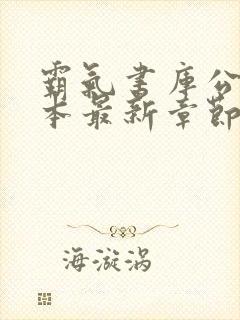 霸氣書庫公
本最新章節
海漩涡